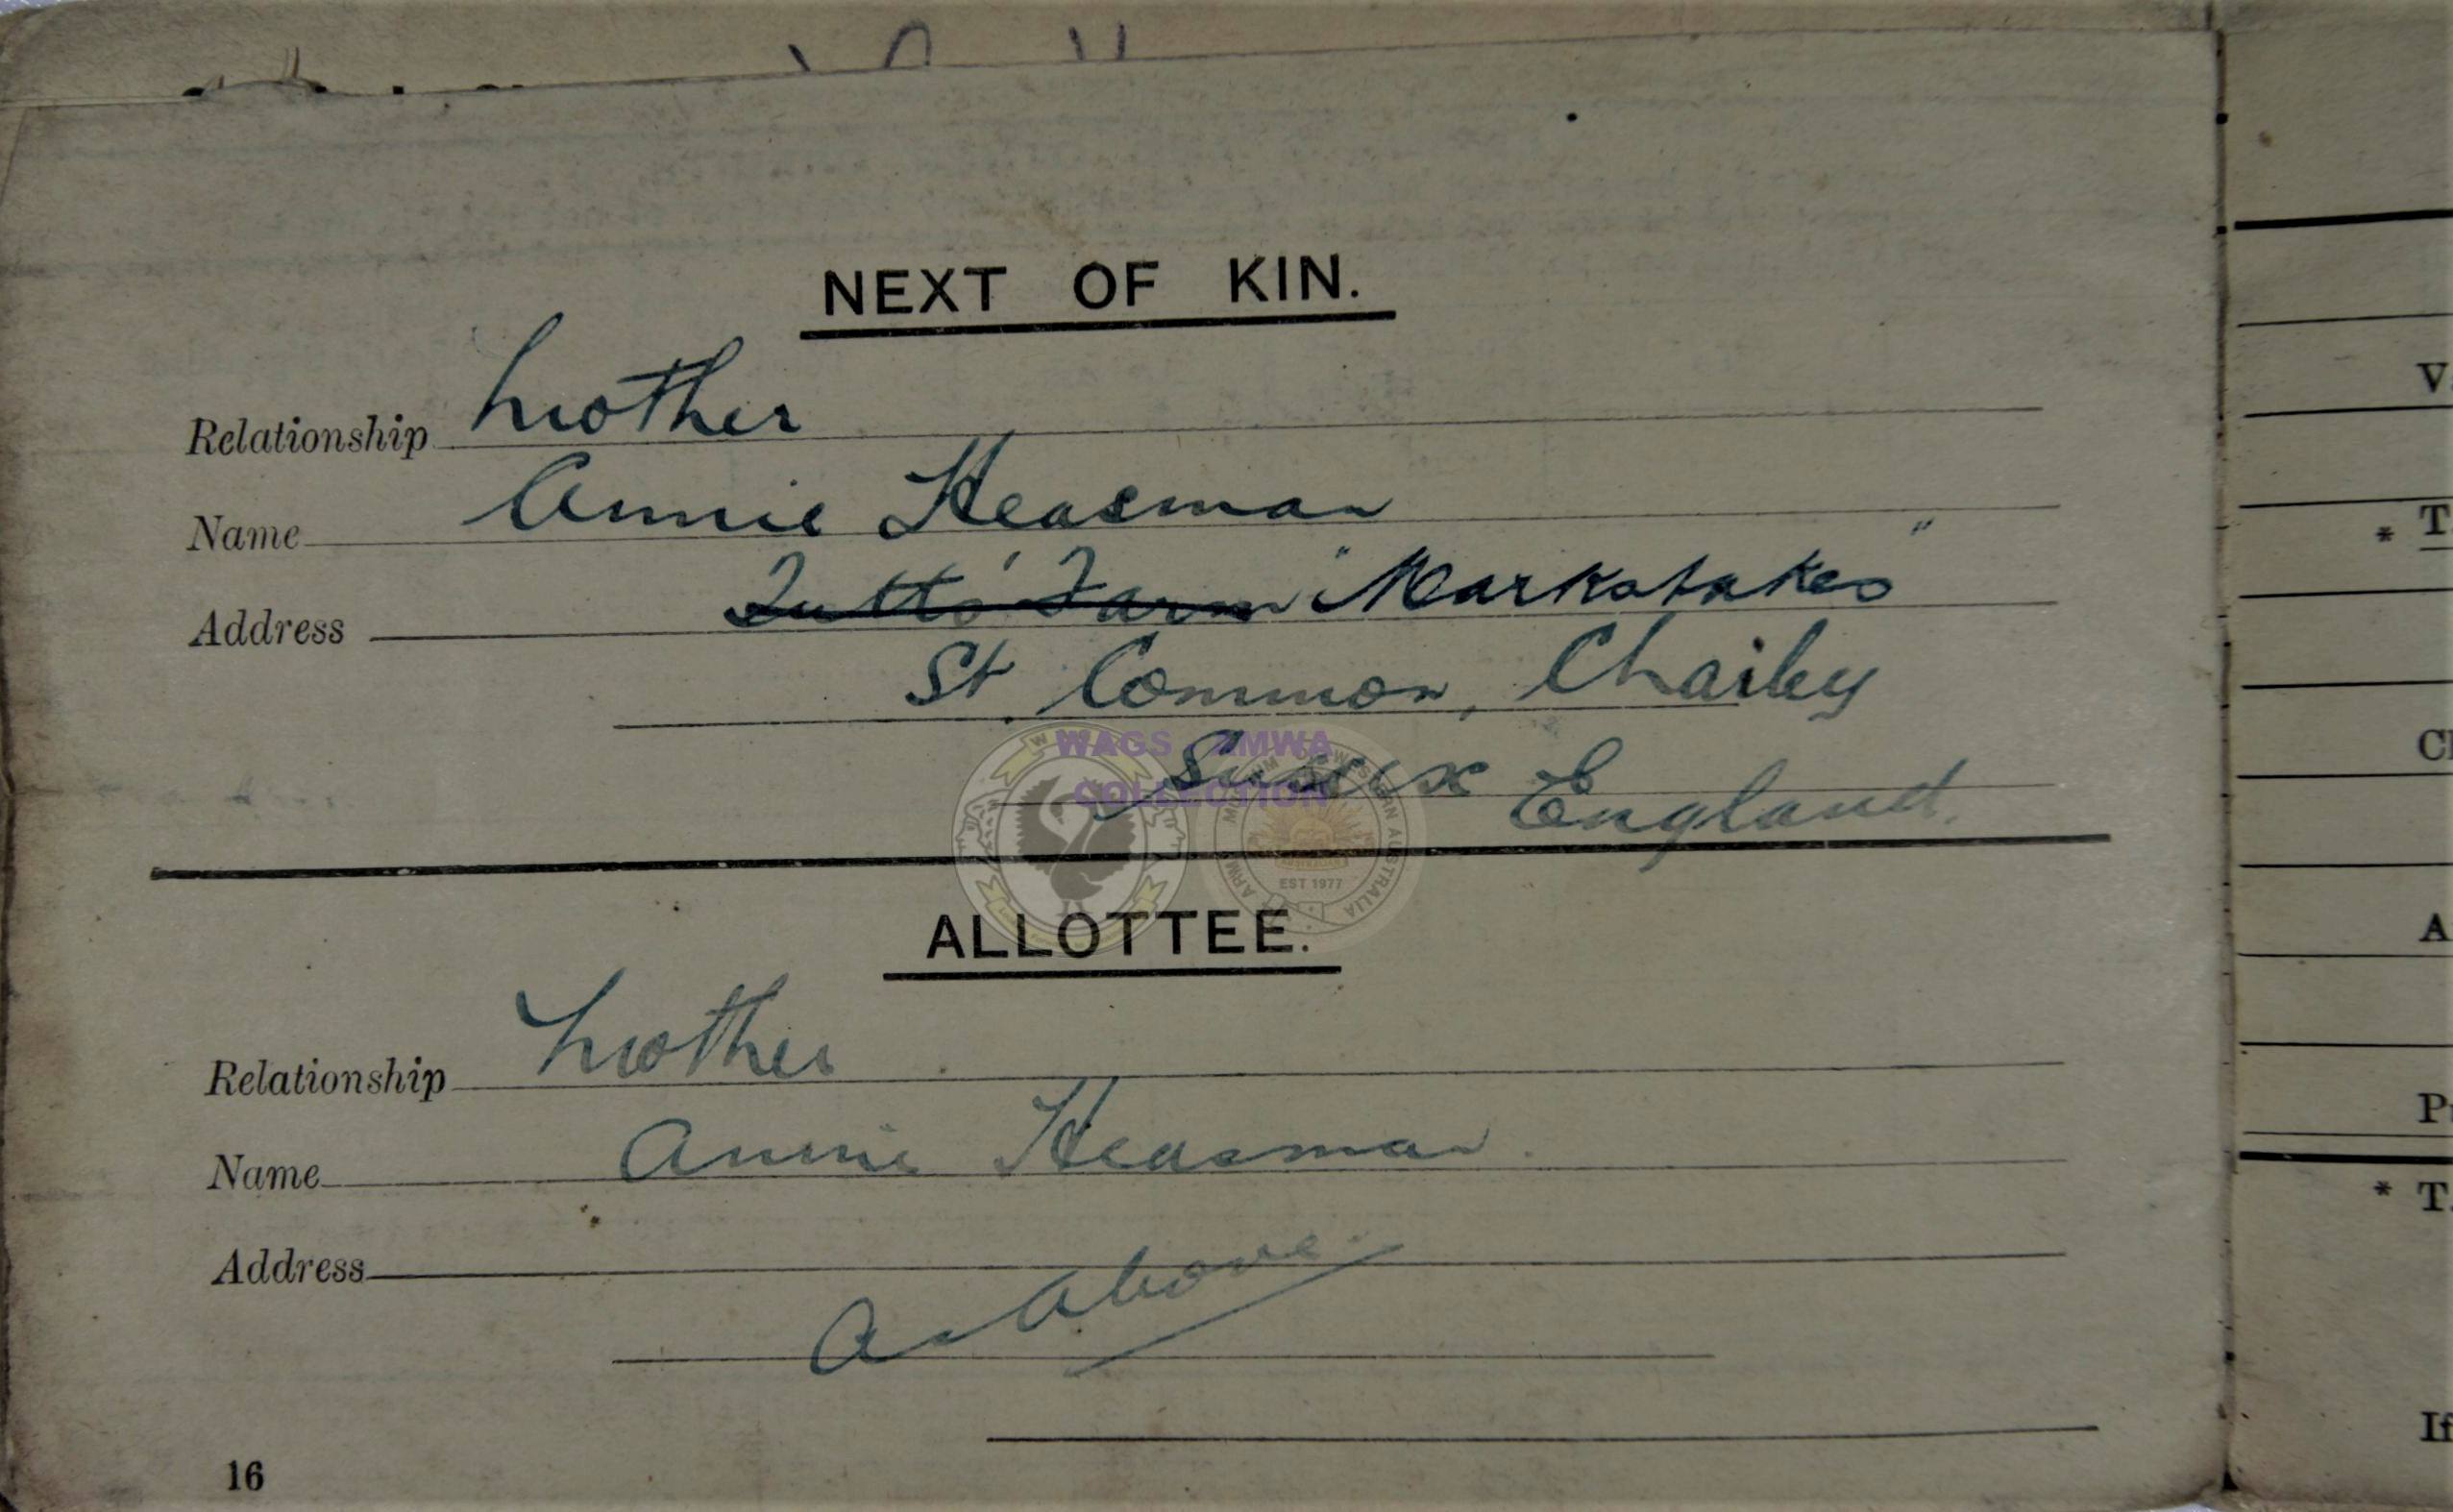 NEXT OF KIN.
Relationship Mother
Name Annie Heasman
Address Tutts' Farm "Markstakes"
St. Common, Chailey
WAGS AMWA
COLLECTION
Sussex England.
EST 1977
ALLOTTEE.
Relationship Mother
Name Annie Heasman.
Address
As Above
16
V
* T
A
* T
If